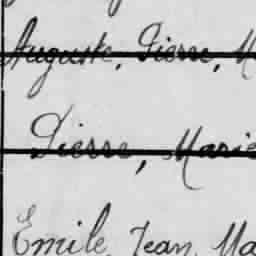 Auguste, Pierre, M
Pierre, Marie
Emile, Jean, Ma